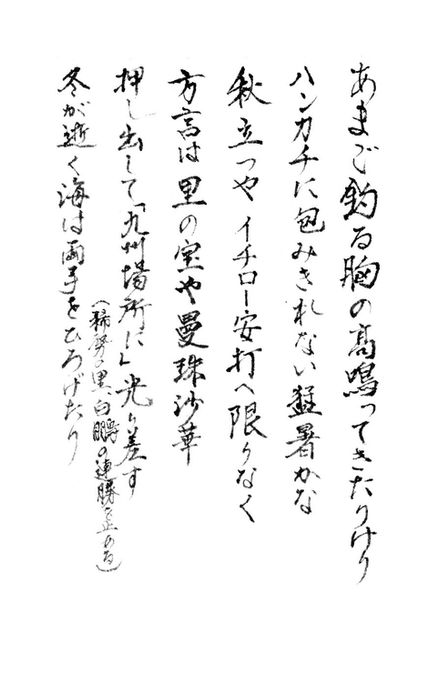 あまご釣る胸の高鳴ってきたりけり
ハンカチに包みきれない猛暑かな
秋立つやイチロー安打へ限りなく
方言は里の宝や曼珠沙華
押し出して「九州場所に」光り差す
(稀勢の里、白鵬の連勝を止める)
冬が逝く海は両手をひろげたり